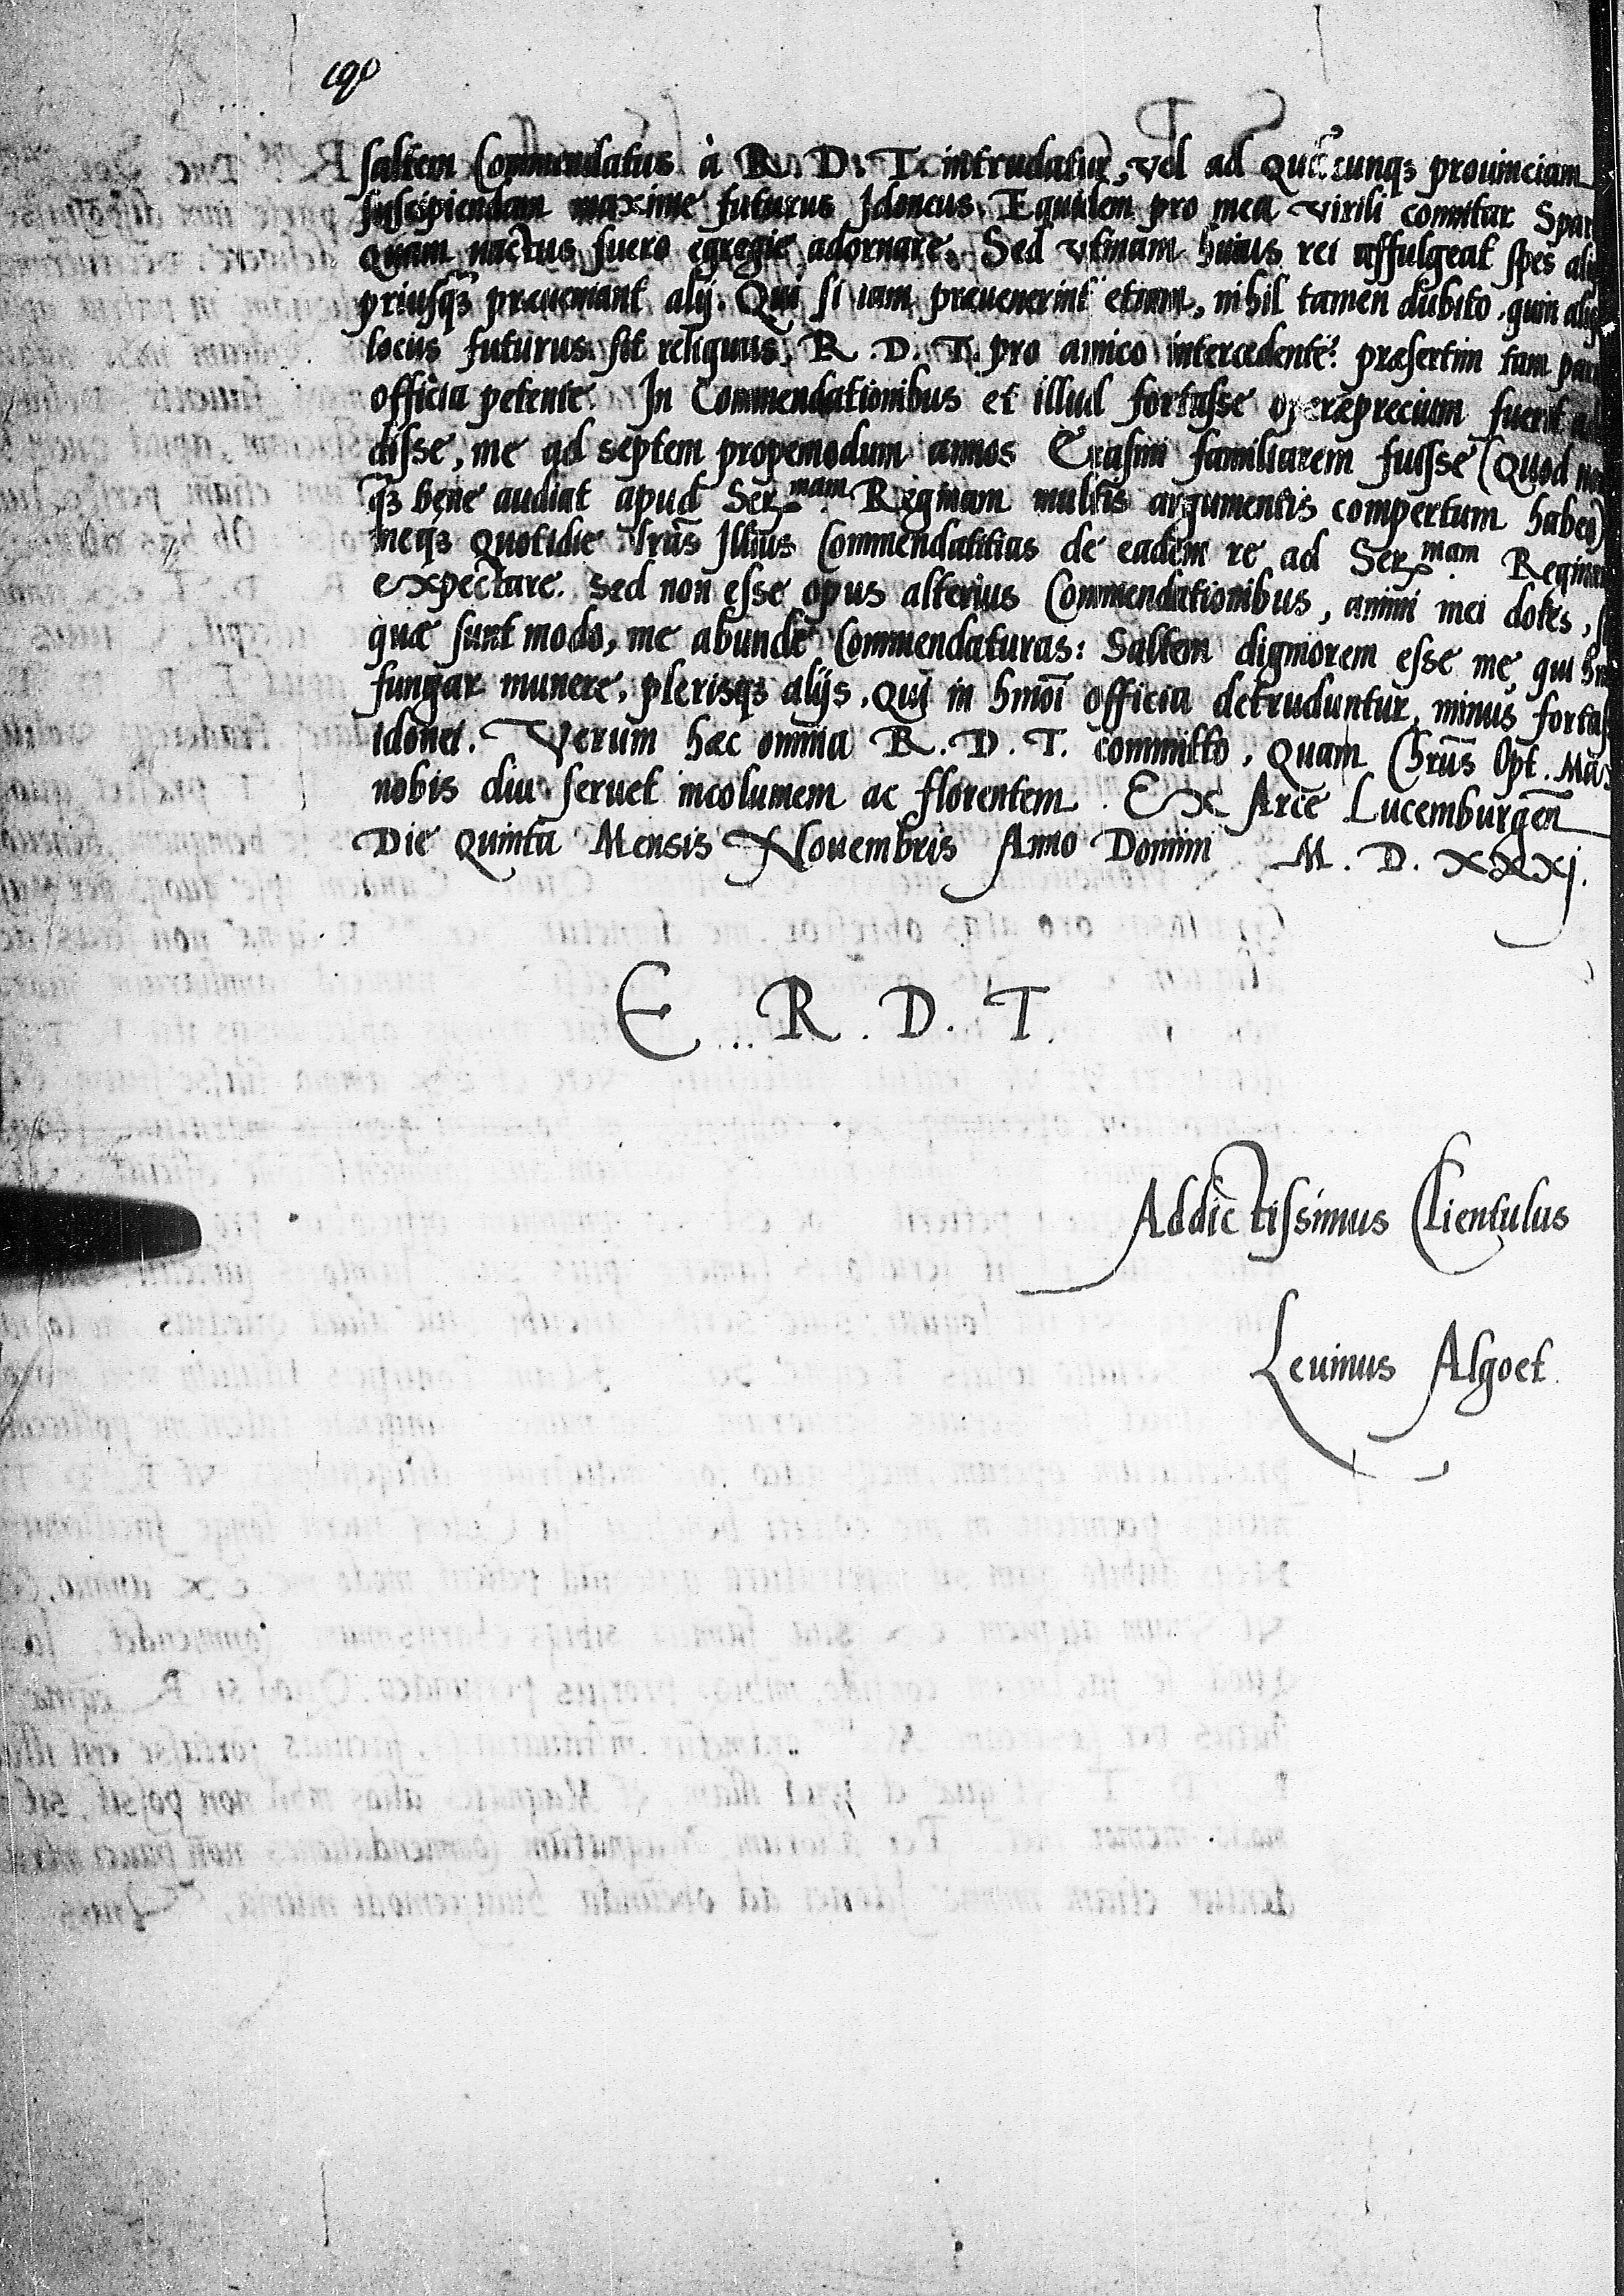 saltem Commendatus à R. D. T. intrudatur, vel ad quācunqꝫ prouinciam
suscipiendam maxime futurus Idoneus. Equidem pro mea virili connitar
quam nactus fuero egregie adornare. Sed vtinam huius rei affulgeat spes
priusqꝫ præueniant alij. Qui si iam præuenerint etiam, nihil tamen dubito, quin
locus futurus sit reliquus, R. D. T. pro amico intercedente: præsertim tam
officia petente. In Commendationibus et illud fortasse operæprecium fuerit
disse, me ad septem propemodum annos Erasmi familiarem fuisse (Quod
qꝫ bene audiat apud Ser.mam Reginam multis argumentis compertum habeo)
meqꝫ quotidie lr̄as Illius Commendatitias de eadem re ad Ser.mam
expectare. Sed non esse opus alterius Commendationibus, animi mei dotes,
quæ sunt modo, me abunde Commendaturas: Saltem digniorem esse me, qui
fungar munere, plerisqꝫ alijs, qui in hmōi officia detruduntur, minus
idonei. Verum hæc omnia R. D. T. committo, quam Chrūs Opt. Max
nobis diu seruet incolumem ac florentem. Ex Arce Lucemburgen̄
Die quinta Mensis Nouembris Anno Domini M. D. XXXj.
E. R. D. T.
Addictissimus Clientulus
Leuinus Algoet.